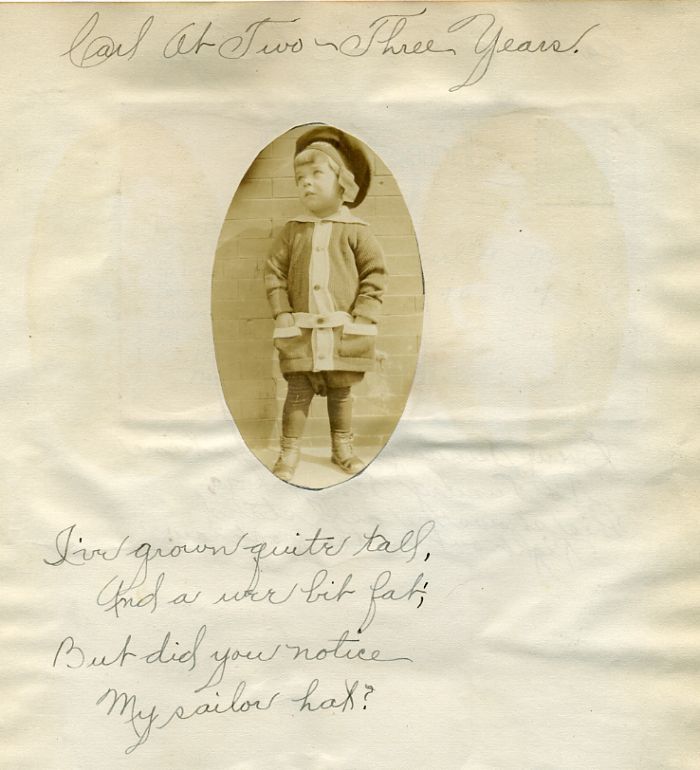 Carl At Two - Three Years.
I've grown quite tall,
And a wee bit fat;
But did you notice
My sailor hat?